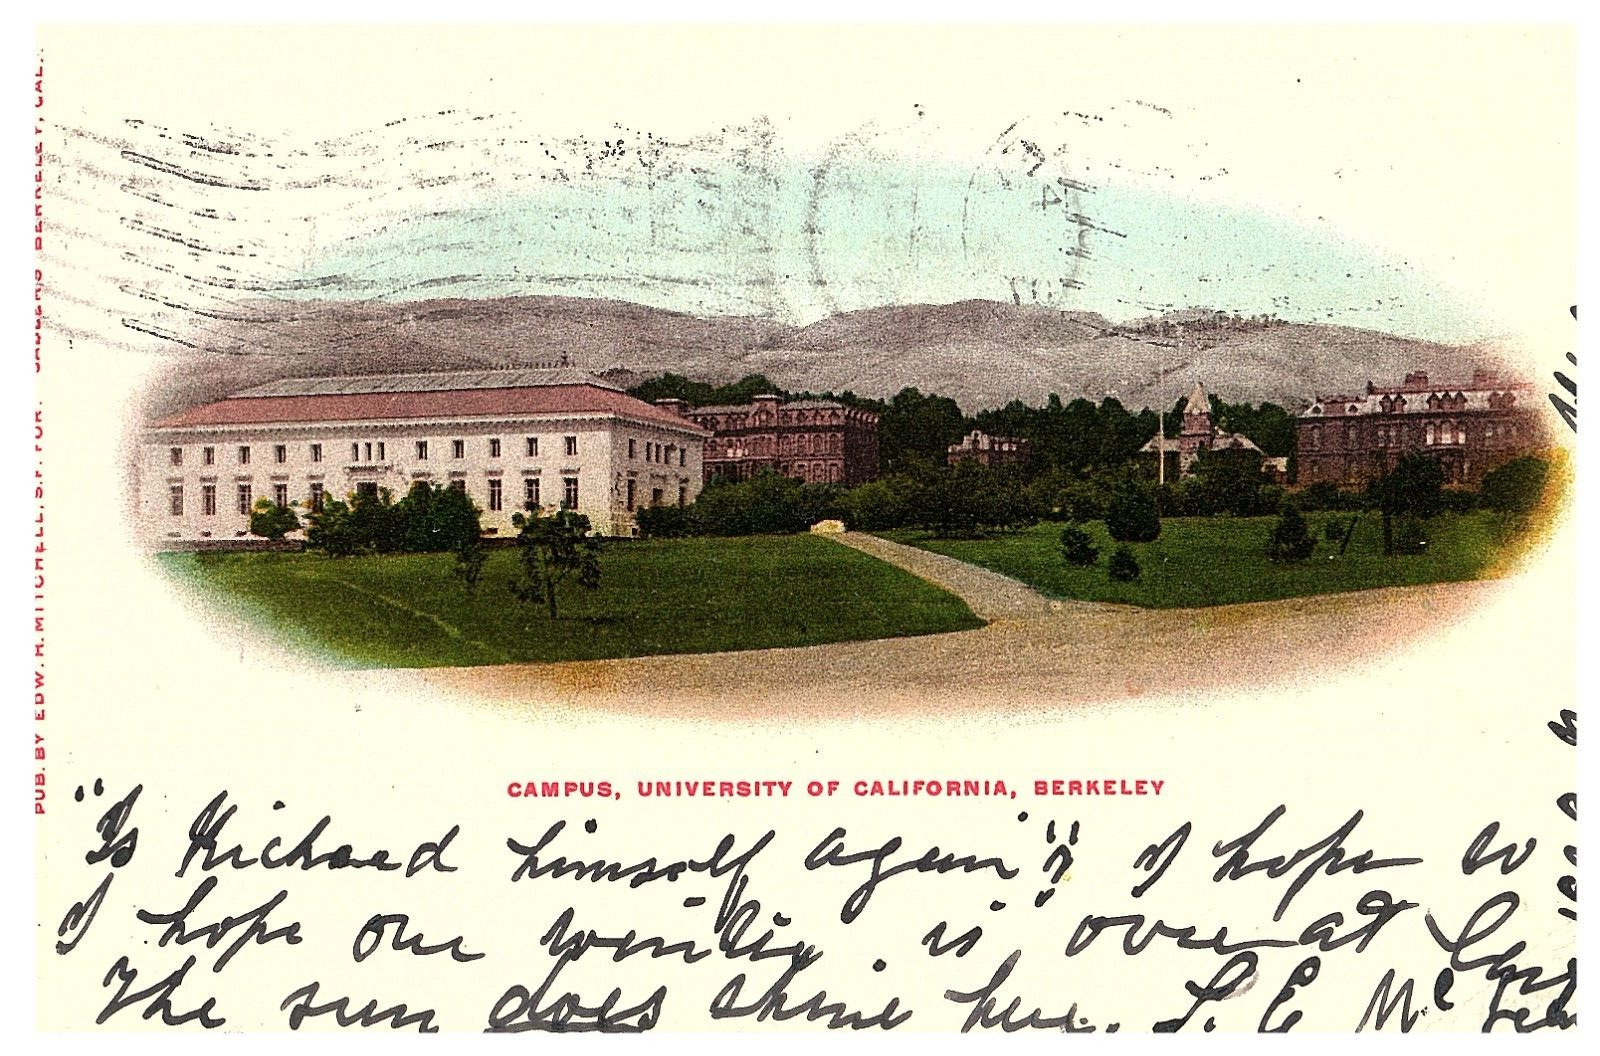 PUB. BY EDW. H. MITCHELL, S.F. FOR. SADLER'S BERKELEY, CAL.
CAMPUS, UNIVERSITY OF CALIFORNIA, BERKELEY
"Is Richard himself again"? I hope so
I hope our winter is over at
The sun does shine here. S. E. Mc